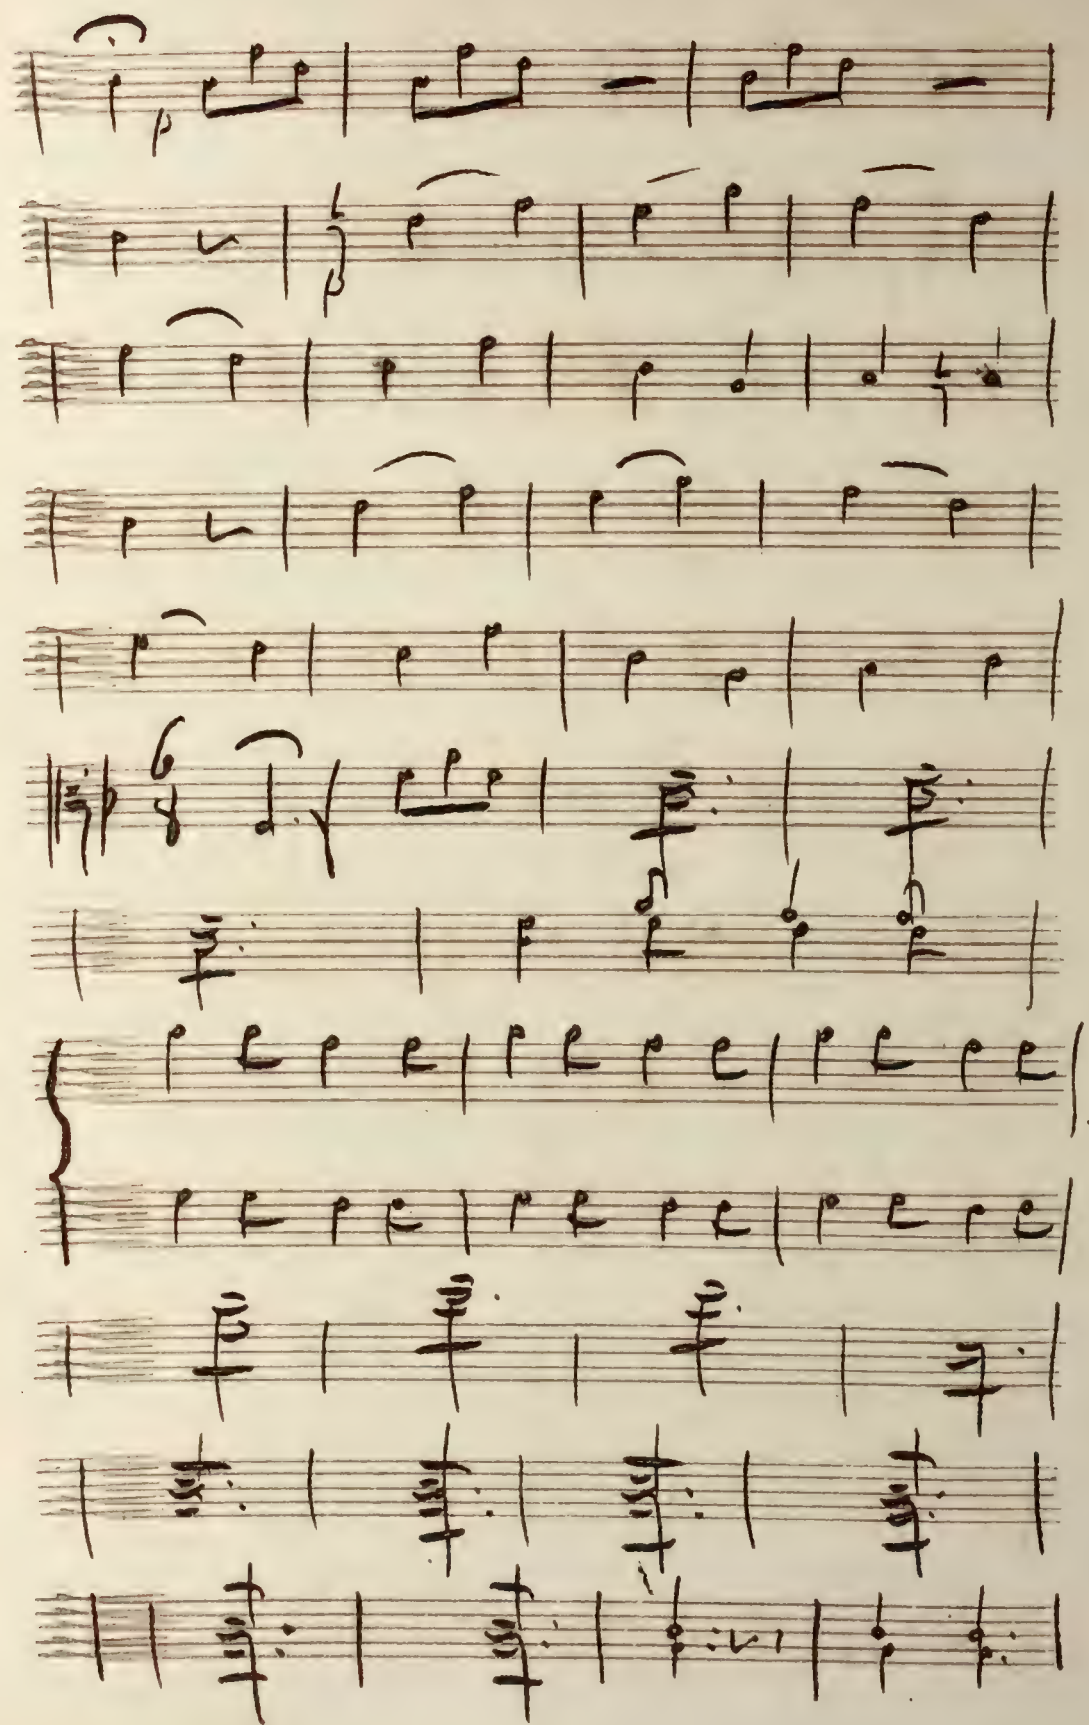 p
p
6
8